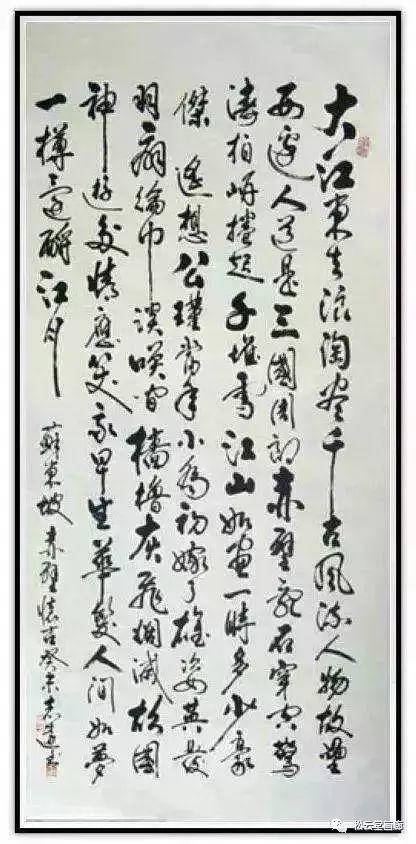 大江東去浪淘盡千古風流人物故壘
西邊人道是三國周郎赤壁亂石穿空驚
濤拍岸捲起千堆雪江山如畫一時多少豪
傑遙想公瑾當年小喬初嫁了雄姿英發
羽扇綸巾談笑間檣櫓灰飛烟滅故國
神遊多情應笑我早生華髮人間如夢
一樽還酹江月
蘇東坡赤壁懷古癸未
松云堂画廊